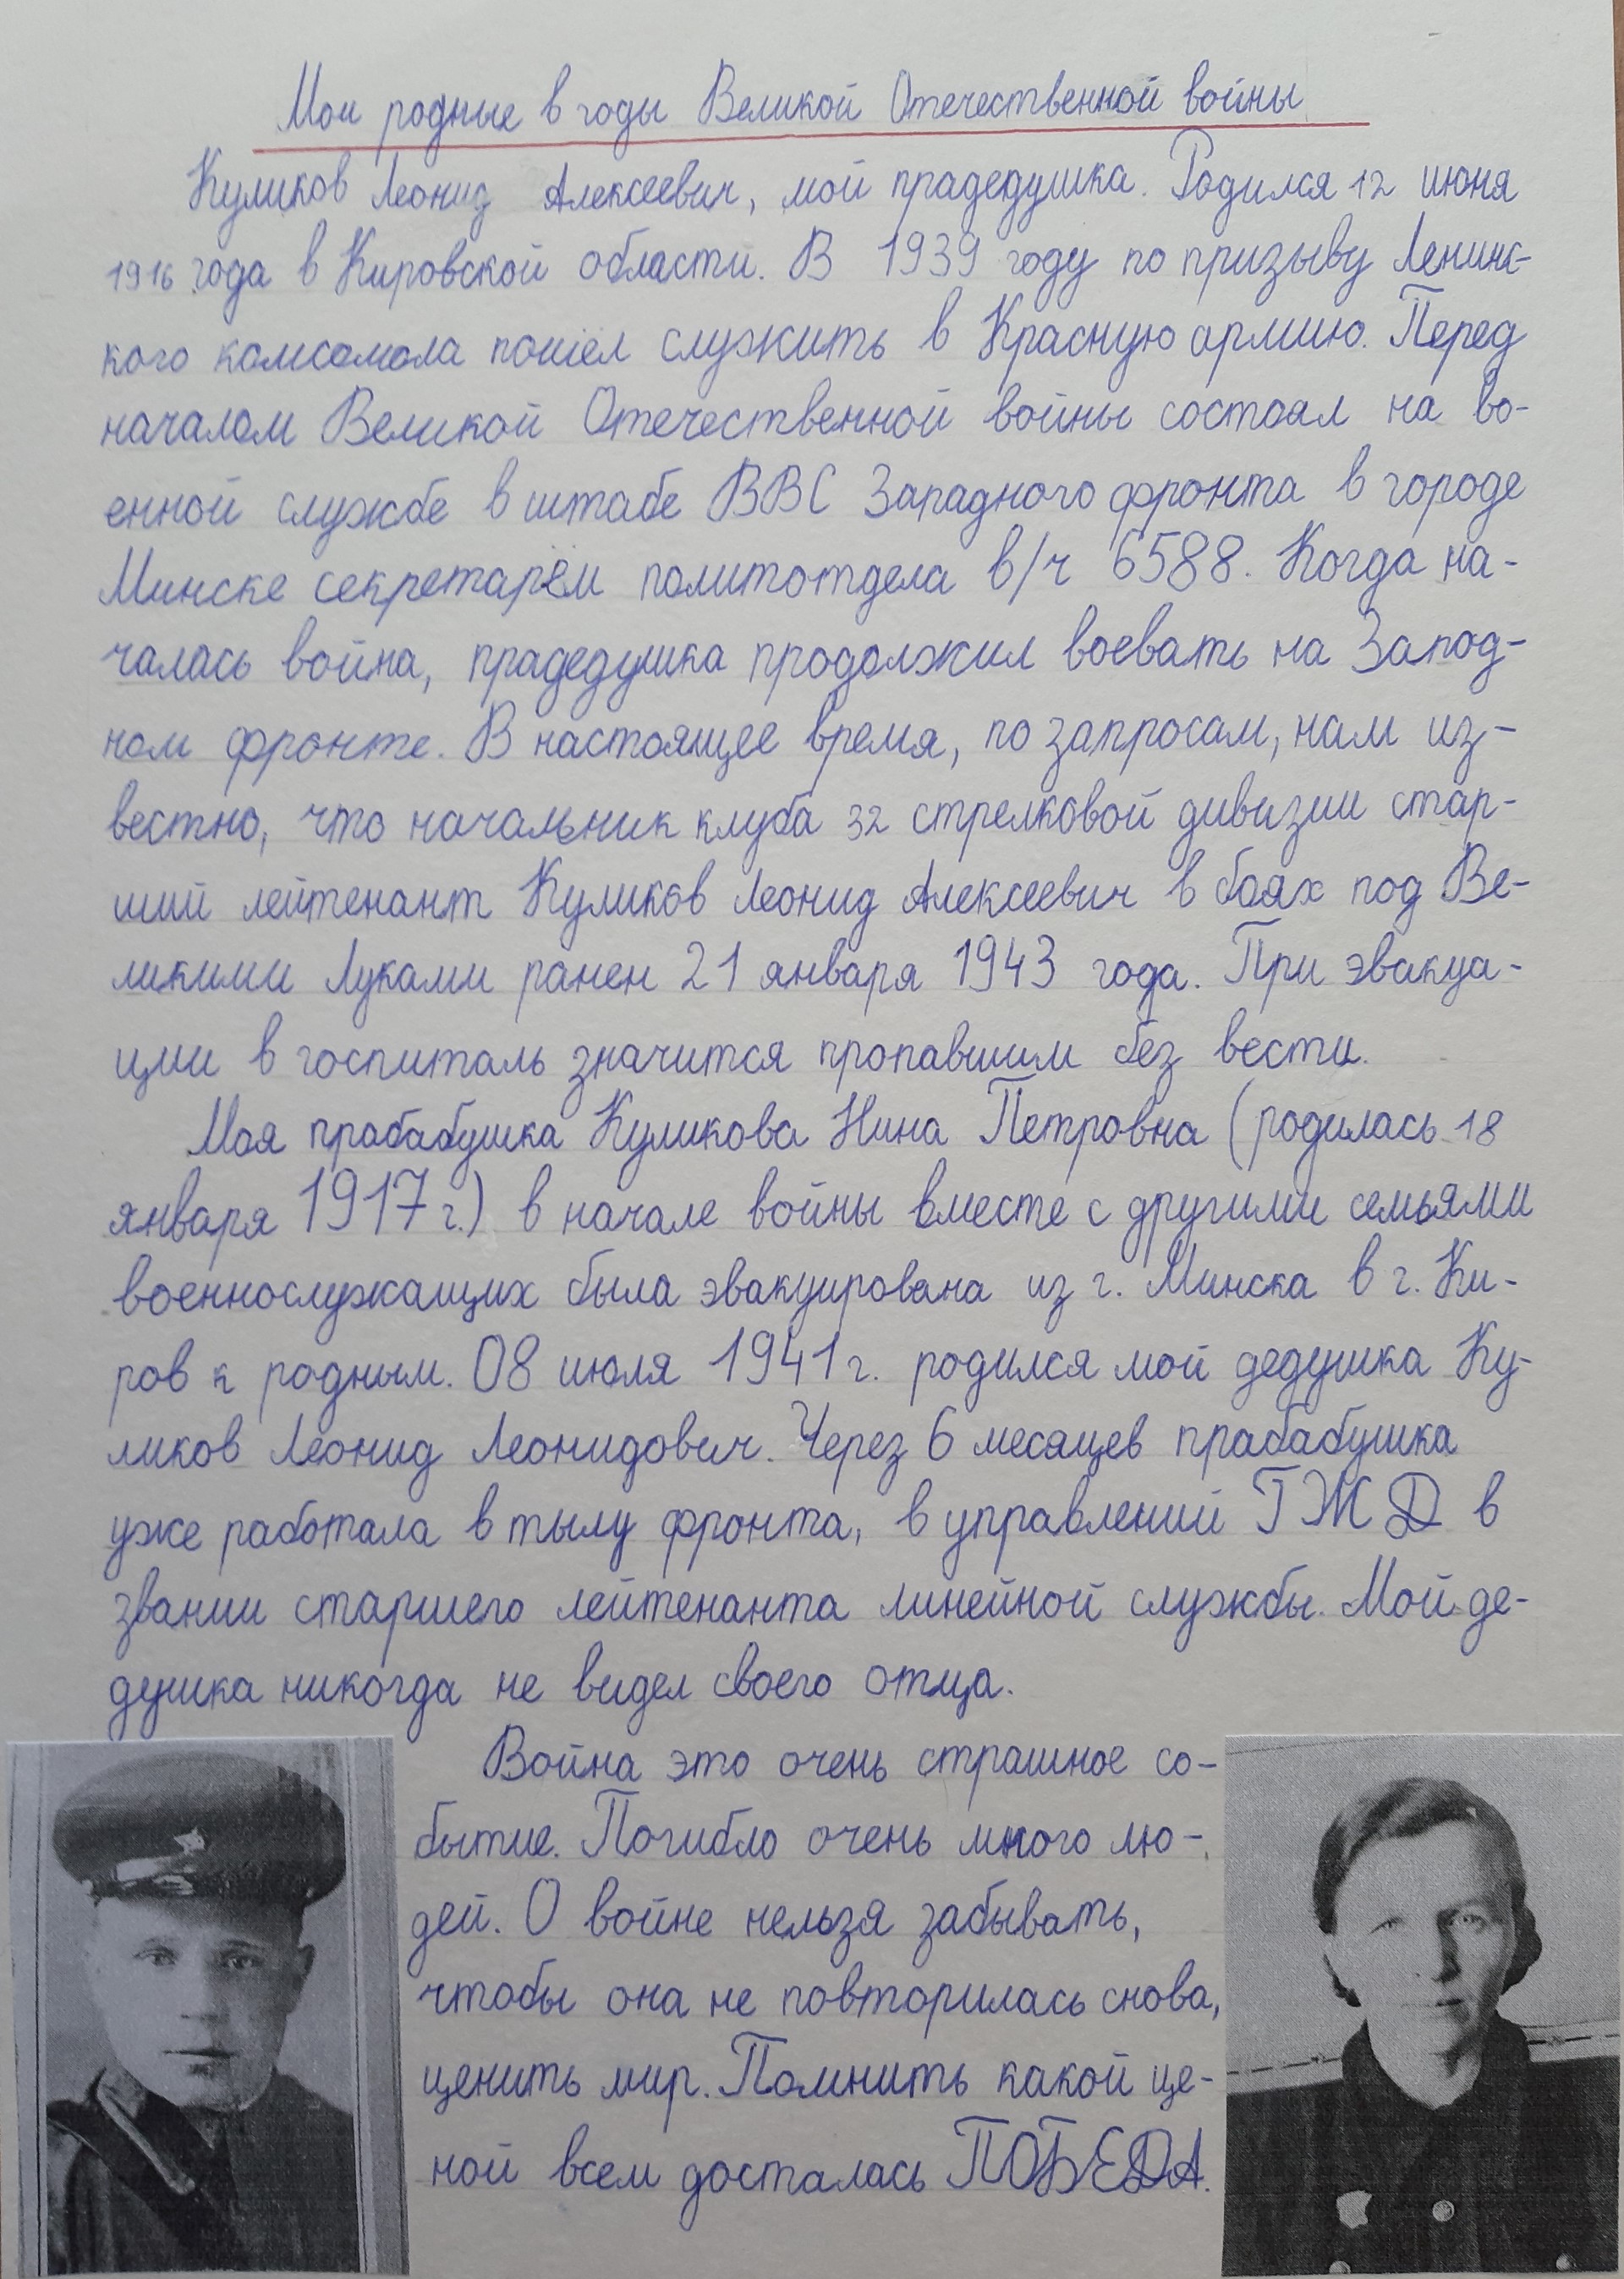 Мои родные в годы Великой Отечественной войны
Куликов Леонид Алексеевич, мой прадедушка. Родился 12 июня
1916 года в Кировской области. В 1939 году по призыву Ленинс-
кого комсомола пошёл служить в Красную армию. Перед
началом Великой Отечественной войны состоял на во-
енной службе в штабе ВВС Западного фронта в городе
Минске секретарём политотдела в/ч 6588. Когда на-
чалась война, прадедушка продолжил воевать на Запад-
ном фронте. В настоящее время, по запросам, нам из-
вестно, что начальник клуба 32 стрелковой дивизии стар-
ший лейтенант Куликов Леонид Алексеевич в боях под Ве-
ликими Луками ранен 21 января 1943 года. При эвакуа-
ции в госпиталь значится пропавшим без вести.
Моя прабабушка Куликова Нина Петровна (родилась 18
января 1917 г.) в начале войны вместе с другими семьями
военнослужащих была эвакуирована из г. Минска в г. Ки-
ров к родным. 08 июля 1941 г. родился мой дедушка Ку-
ликов Леонид Леонидович. Через 6 месяцев прабабушка
уже работала в тылу фронта, в управлений ГЖД в
звании старшего лейтенанта линейной службы. Мой де-
душка никогда не видел своего отца.
Война это очень страшное со-
бытие. Погибло очень много лю-
дей. О войне нельзя забывать,
чтобы она не повторилась снова,
ценить мир. Помнить какой це-
ной всем досталась ПОБЕДА.